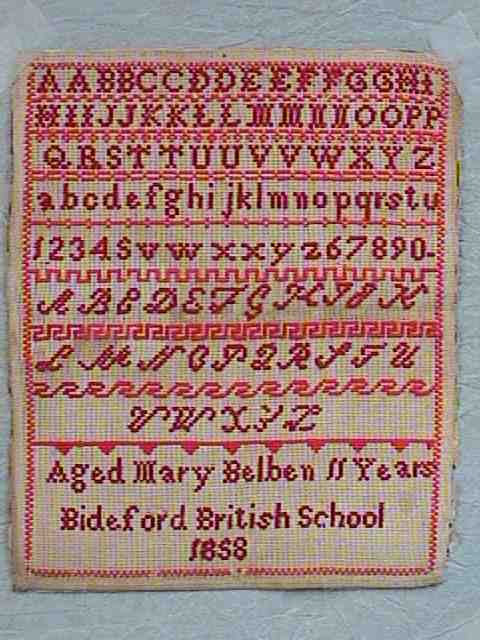 AABBCCDDEEFFGGHI
HIIJJKKLLMMNNOOPP
QRSTTUUVVWXYZ
abcdefghijklmnopqrstu
12345vwxxyz67890.
ABCDEFGHIJK
LMNOPQRSTU
VWXYZ
Aged Mary Belben 11 Years
Bideford British School
1858